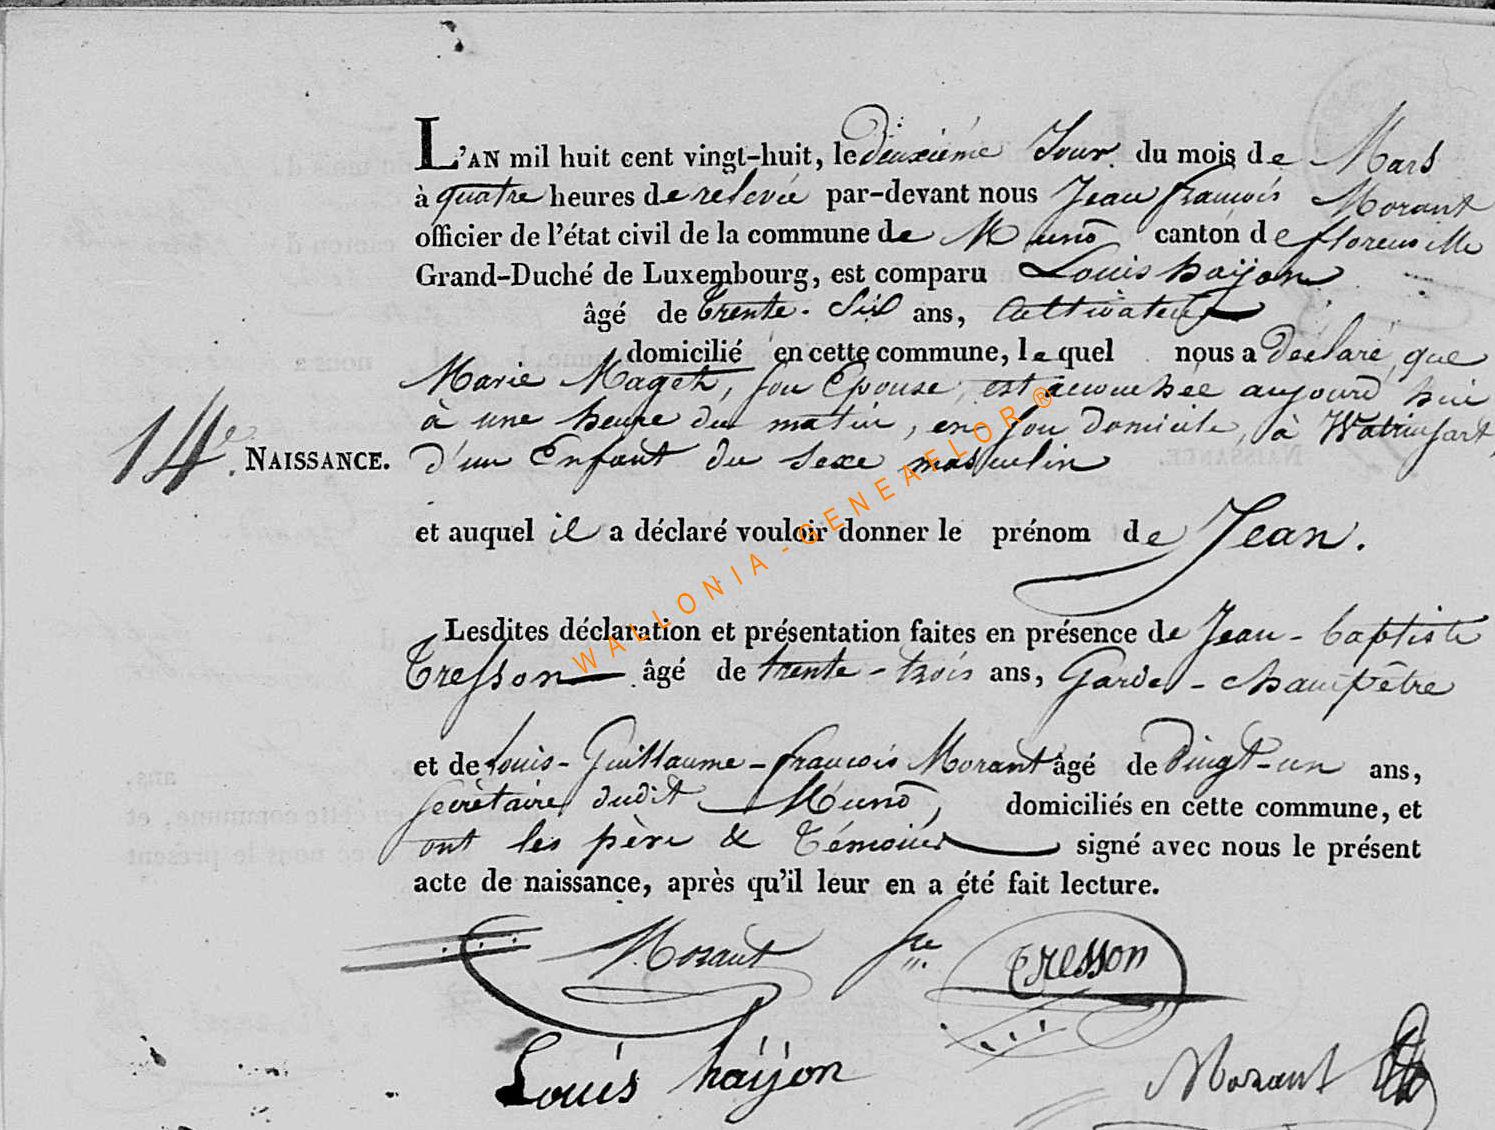 L'AN mil huit cent vingt-huit, le deuxième Jour du mois de Mars
à quatre heures de relevée par-devant nous Jean françois Morant
officier de l'état civil de la commune de Muno canton de florenville
Grand-Duché de Luxembourg, est comparu Louis haijon
âgé de trente-six ans, Cultivateur
domicilié en cette commune, lequel nous a declaré, que
Marie Mageh, son Epouse, est accouchée aujourd'hui
à une heure du matin, en son domicile, à Watrinsart,
14e. NAISSANCE. d'un Enfant du sexe masculin
et auquel il a déclaré vouloir donner le prénom de Jean.
Lesdites déclaration et présentation faites en présence de Jean-baptiste
Tresson âgé de trente-trois ans, Garde-champêtre
et de Louis-Guillaume-françois Morant âgé de Vingt-un ans,
secrétaire dudit Muno, domiciliés en cette commune, et
ont les père & Témoins signé avec nous le présent
acte de naissance, après qu'il leur en a été fait lecture.
Morant sre Tresson
Louis haijon Morant
WALLONIA-GENEAFLOR®